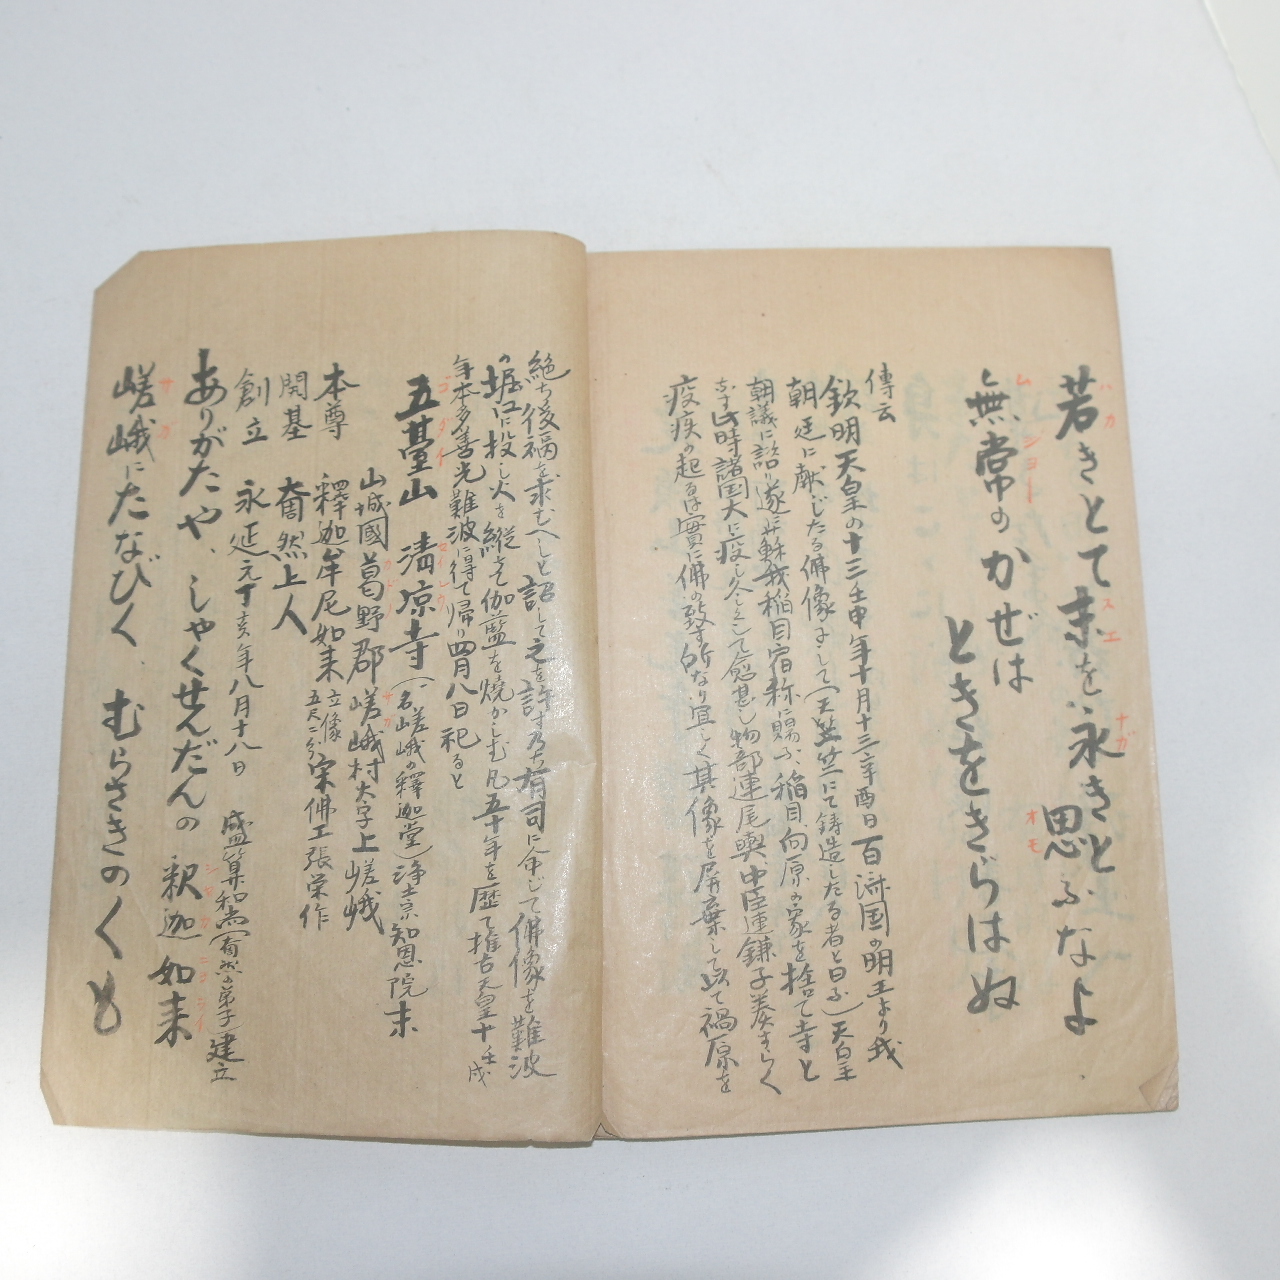 若きとて末を永きと思ふなよ
ハカ スエ ナガ オモ
無常のかぜは
ムジョー
ときをきらはぬ
傳云
欽明天皇の十三壬申年十月十三辛酉日百済国の明王より我
朝廷に献じたる佛像にして(天竺にて鋳造したる者と曰ふ)天皇
朝議に諮り遂に蘇我稲目宿祢に賜ふ、稲目、向原の家を捨て寺と
なす此時諸国大に疫し久くして愈甚し物部連尾輿、中臣連鎌子奏すらく
疫疾の起るは實に佛の致す所なり宜しく其像を屏棄して以て禍原を
絶ち後福を求むへしと詔して之を許す乃ち有司に命じて佛像を難波
の堀江に投し火を縦て伽藍を焼かしむ凡五十年を歴て推古天皇十壬戌
年本多善光難波に得て帰り四月八日祀ると
五臺山 清凉寺(一名嵯峨の釋迦堂)浄土宗知恩院末
ゴダイ
山城國葛野郡嵯峨村大字上嵯峨
サガ
本尊 釋迦牟尼如来 立像五尺二分 宋佛工張栄作
開基 奝然上人
創立 永延元丁亥年八月十八日 盛算和尚(奝然の弟子)建立
ありがたや、しやくせんだんの釈迦如来
シャカニヨライ
嵯峨にたなびく、むらさきのくも
サガ